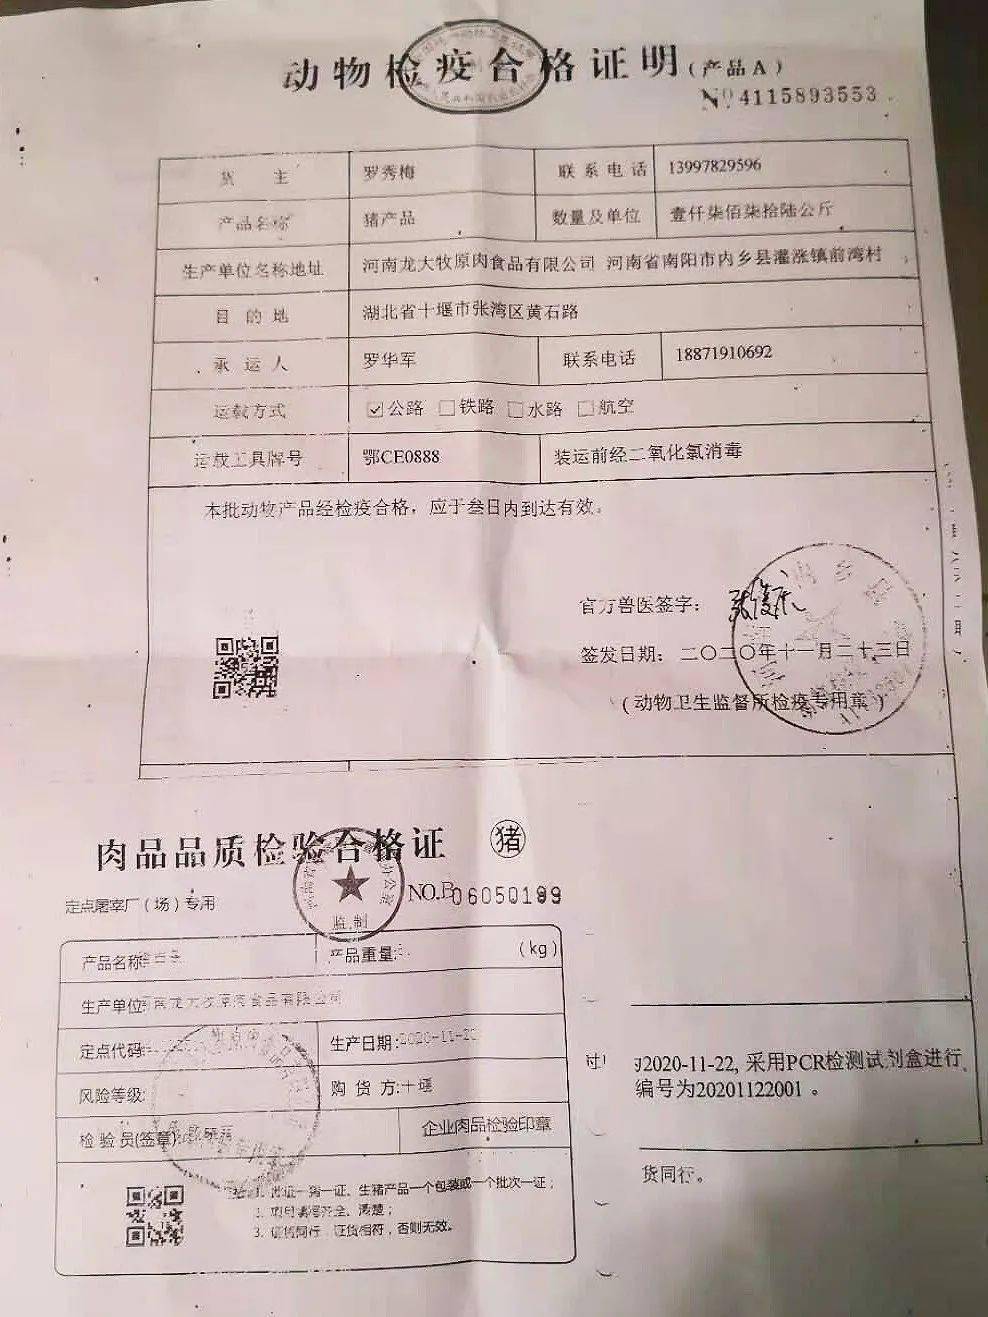 动物检疫合格证明(产品A)
№ 4115893553
货 主 罗秀梅 联系电话 13997829596
产品名称 猪产品 数量及单位 壹仟柒佰柒拾陆公斤
生产单位名称地址 河南龙大牧原肉食品有限公司 河南省南阳市内乡县灌涨镇前湾村
目的地 湖北省十堰市张湾区黄石路
承运人 罗华军 联系电话 18871910692
运载方式 ☑公路 □铁路 □水路 □航空
运载工具牌号 鄂CE0888 装运前经二氧化氯消毒
本批动物产品经检疫合格，应于叁日内到达有效。
官方兽医签字：
签发日期：二〇二〇年十一月二十三日
(动物卫生监督所检疫专用章)
肉品品质检验合格证 猪
定点屠宰厂(场)专用 NO.B06050199
监制
产品名称 产品重量: (kg)
生产单位 河南龙大牧原肉食品有限公司
定点代码: 生产日期:2020-11-2
风险等级: 购货方:十堰
检验员(签章) 企业肉品检验印章
2020-11-22, 采用PCR检测试剂盒进行
编号为20201122001 。
货同行。
一货一证、生猪产品一个包装或一个批次一证；
3. 证货同行，证货相符，否则无效。